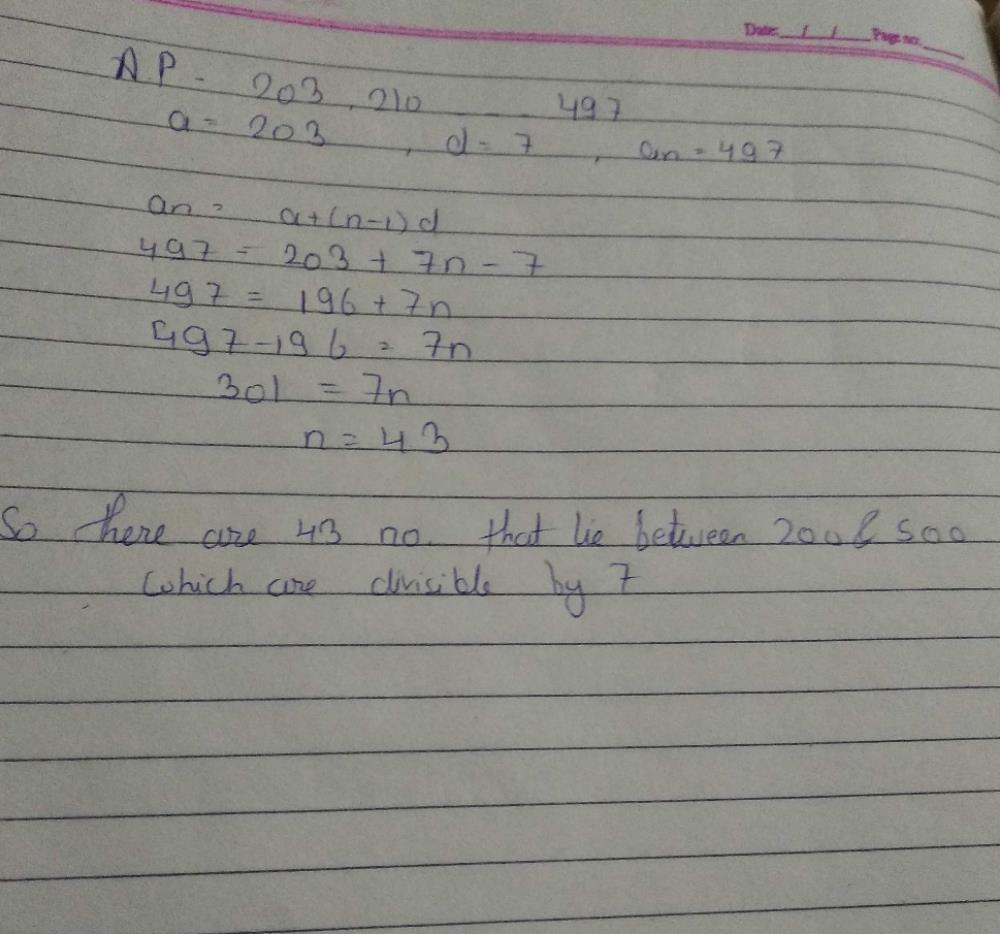 Date: / / Page no:
AP - 203, 210 497
a = 203, d = 7, an = 497
an = a+(n-1)d
497 = 203 + 7n - 7
497 = 196 + 7n
497-196 = 7n
301 = 7n
n = 43
So there are 43 no. that lie between 200 & 500
which are divisible by 7